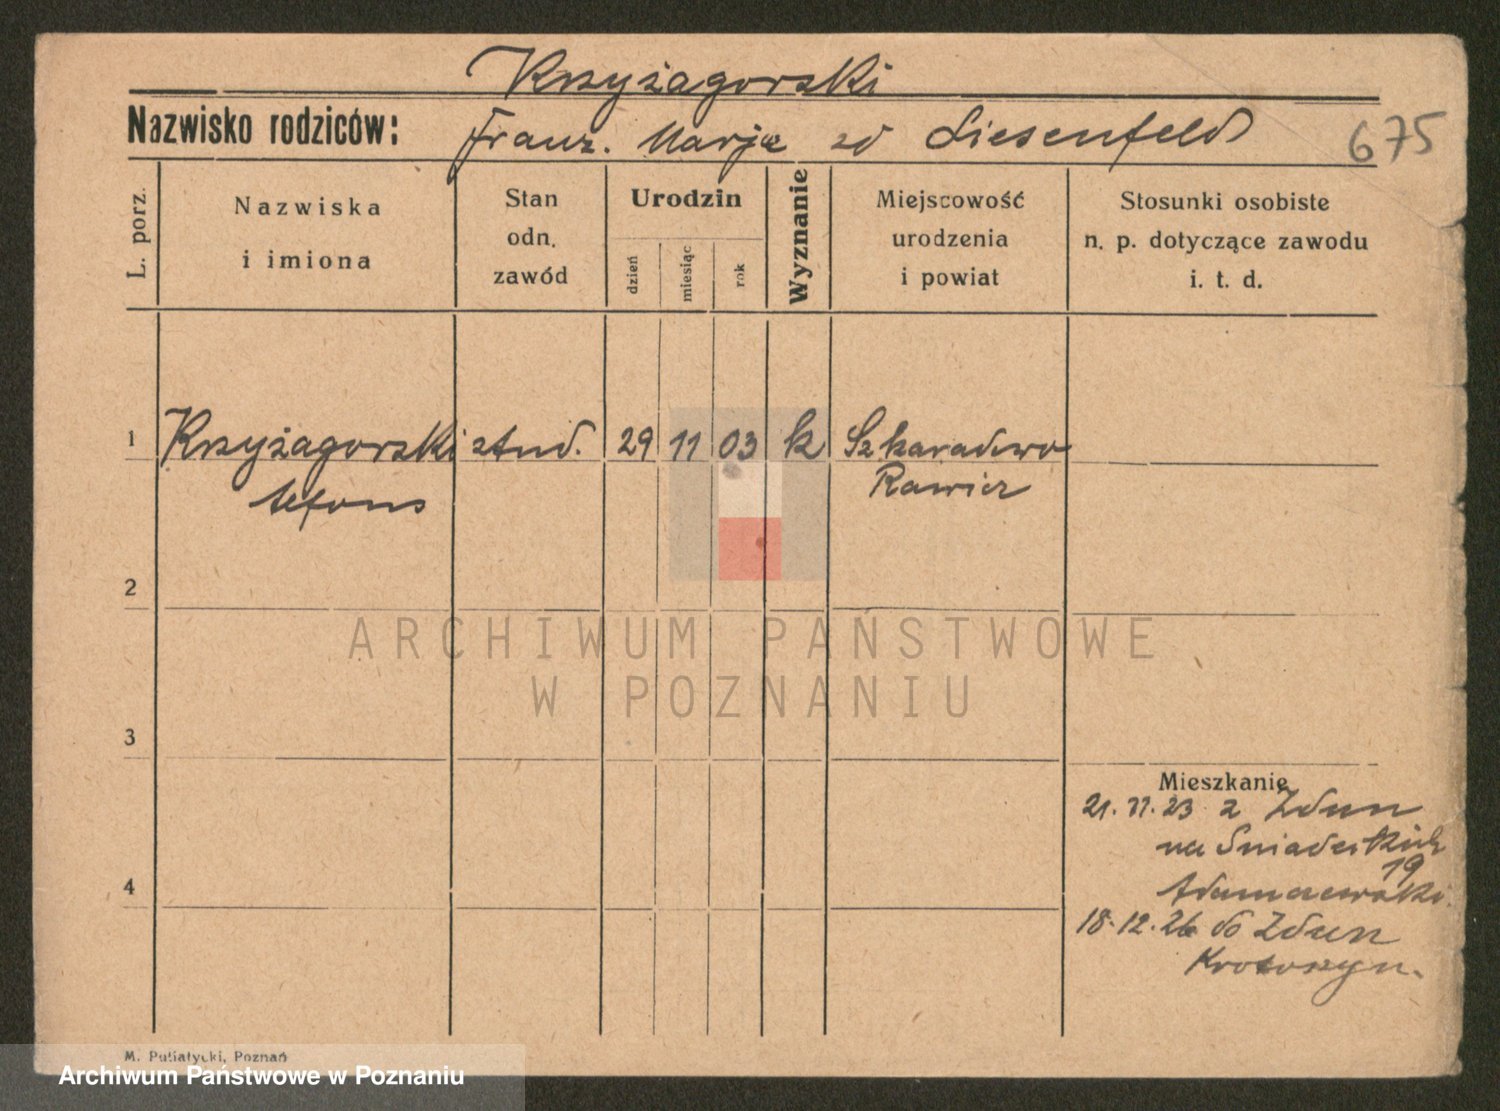 Krzyżagorski
Nazwisko rodziców: Franz. Marja zd Liesenfeld
675
L. porz.
Nazwiska
i imiona
Stan
odn.
zawód
Urodzin
dzień
miesiąc
rok
Wyznanie
Miejscowość
urodzenia
i powiat
Stosunki osobiste
n. p. dotyczące zawodu
i. t. d.
1 Krzyżagorski stud. 29 11 03 k Szkaradowo
Alfons Rawicz
2
3
Mieszkanie
21.11.23 z Zdun
na Śniadeckich
19
Adamczewski.
4
18.12.26 do Zdun
Krotoszyn.
ARCHIWUM PAŃSTWOWE
W POZNANIU
M. Putiatycki, Poznań
Archiwum Państwowe w Poznaniu